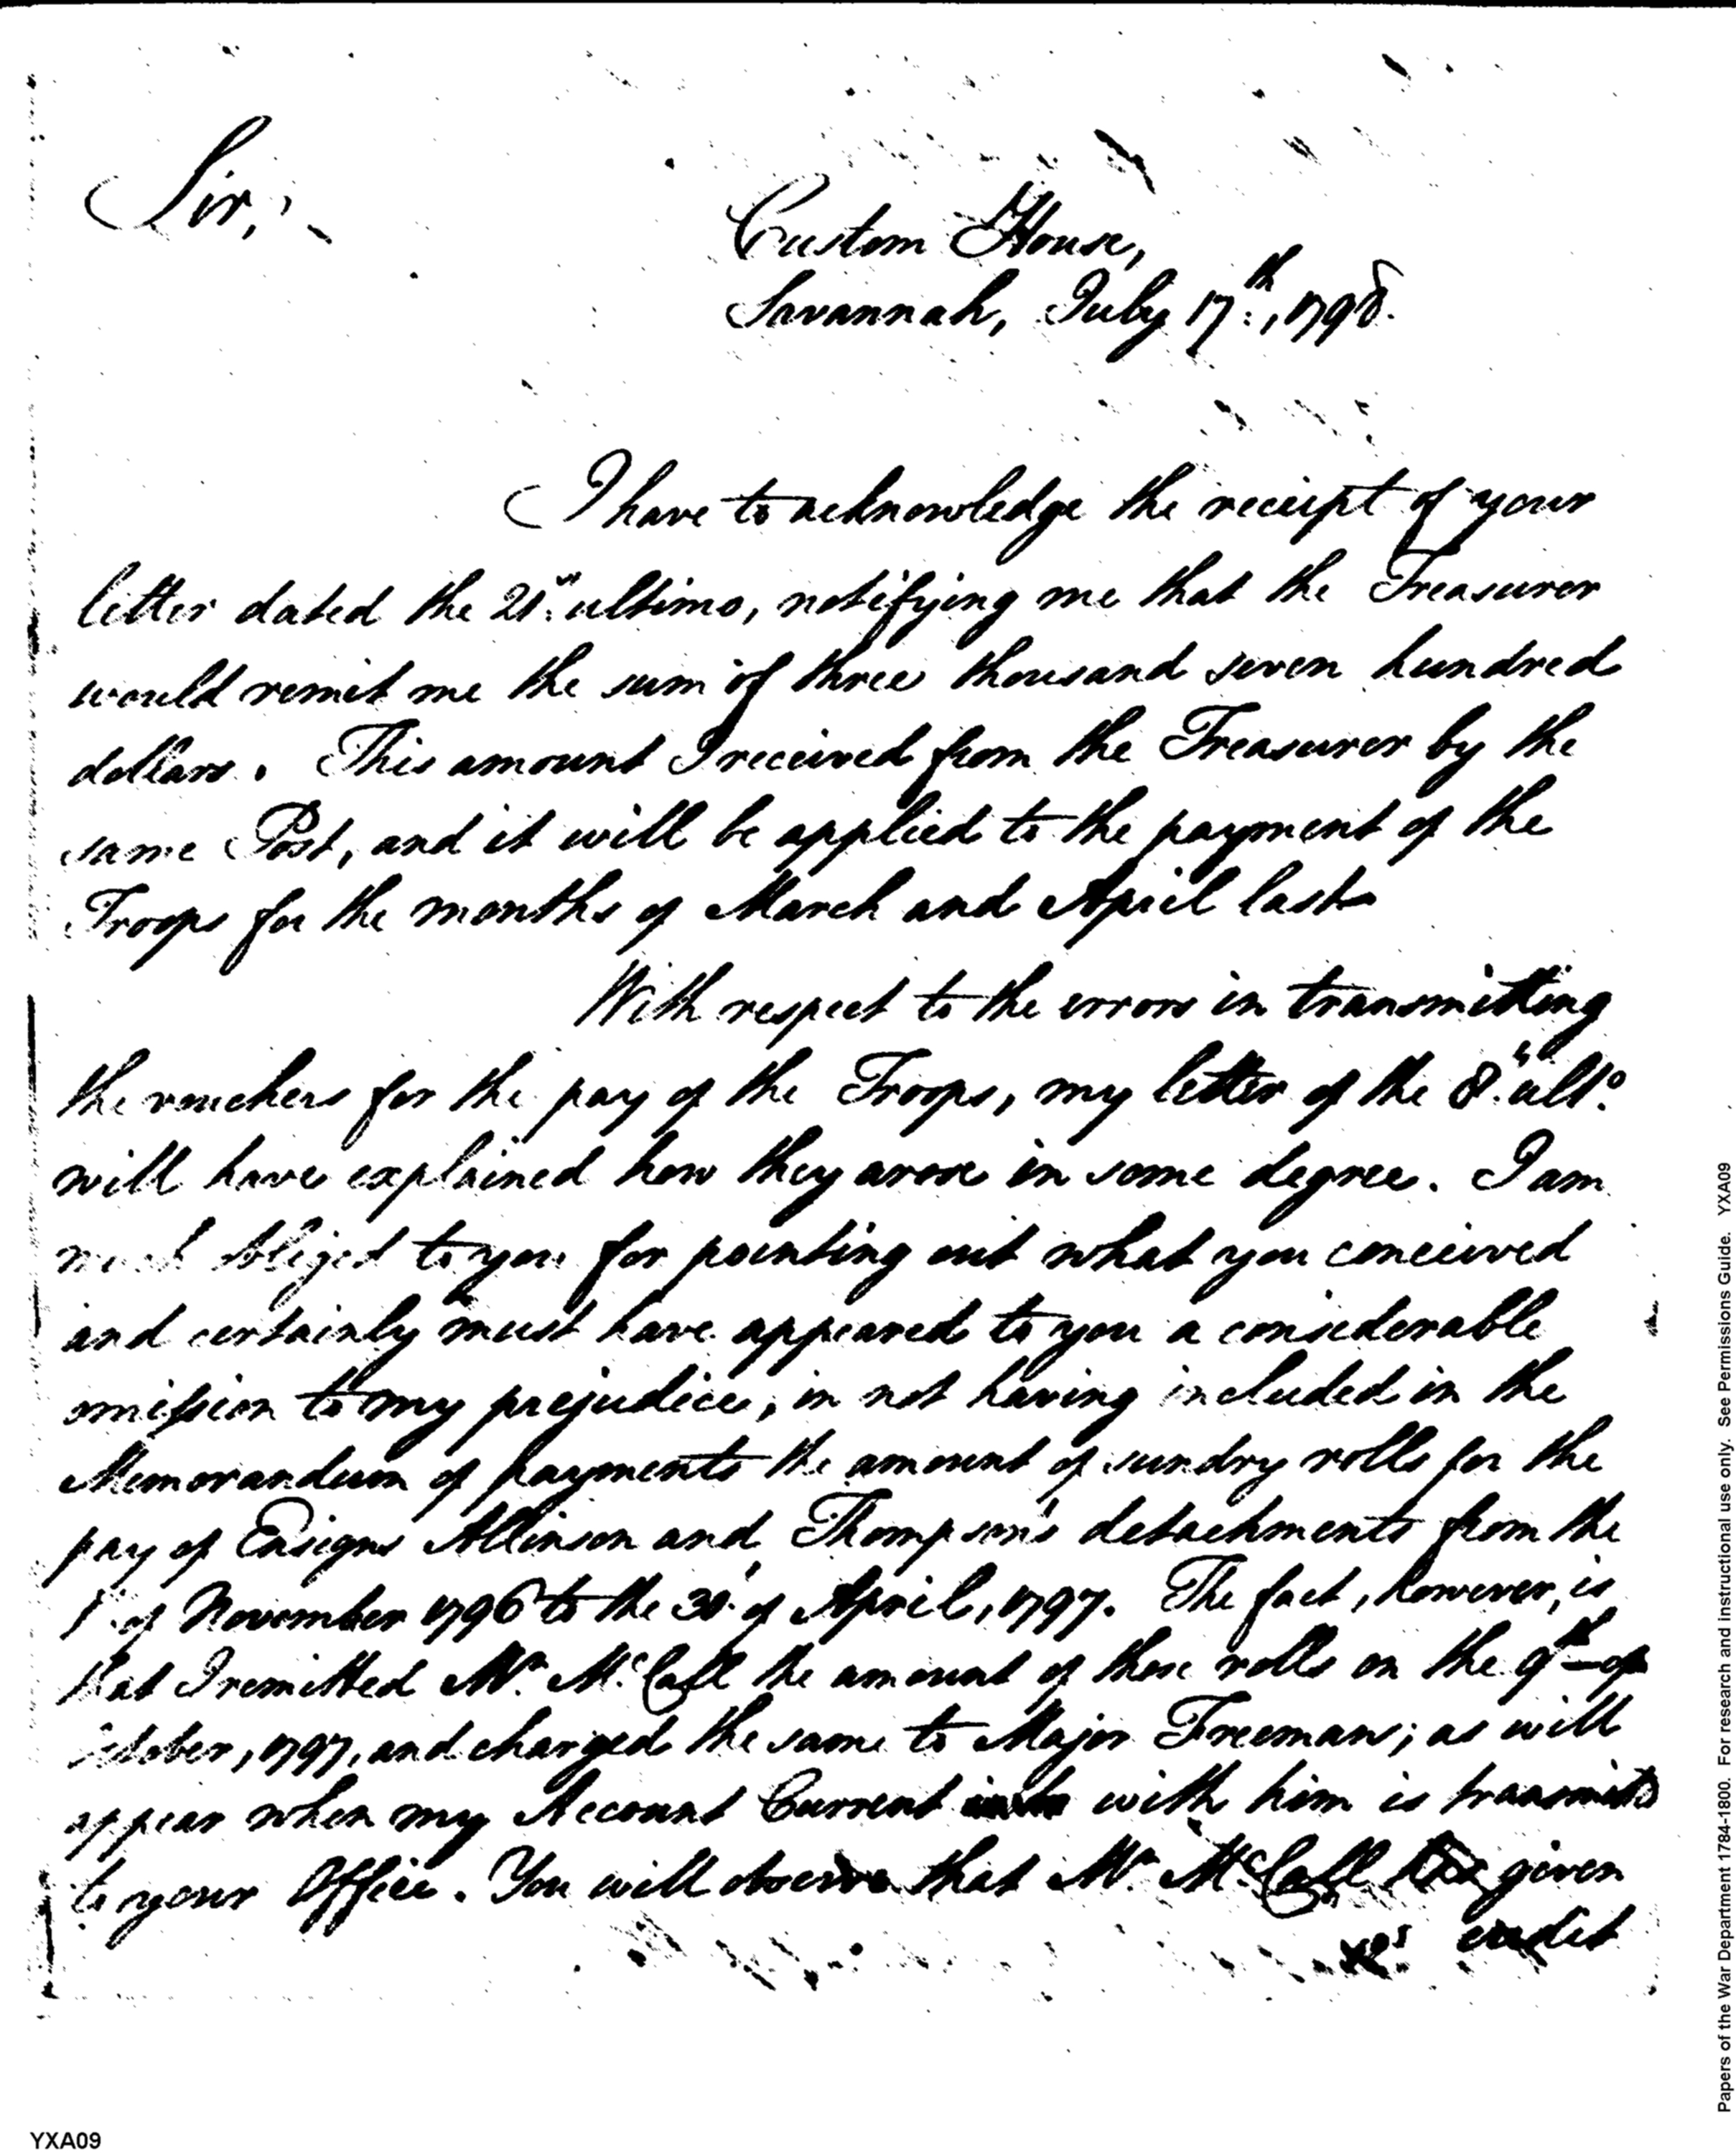 Sir,
Custom House,
Savannah, July 17th, 1798.
I have to acknowledge the receipt of your
letter dated the 21st ultimo, notifying me that the Treasurer
would remit me the sum of three thousand seven hundred
dollars. This amount I received from the Treasurer by the
same Post, and it will be applied to the payment of the
Troops for the months of March and April last
With respect to the errors in transmitting
the vouchers for the pay of the Troops, my letter of the 8th ulto.
will have explained how they arose in some degree. I am
much obliged to you for pointing out what you conceived
and certainly must have appeared to you a considerable
omission to my prejudice, in not having included in the
Memorandum of payments the amount of sundry rolls for the
pay of Ensigns Allinson and Thompson's detachments from the
1st of November 1796 to the 30th of April, 1797. The fact, however, is
that I remitted Mr. McCall the amount of those rolls on the 9th of
October, 1797, and charged the same to Major Freeman; as will
appear when my Account Current with him is transmitd
to your Office. You will observe that Mr. McCall has given
credit
Papers of the War Department 1784-1800. For research and instructional use only. See Permissions Guide. YXA09
YXA09